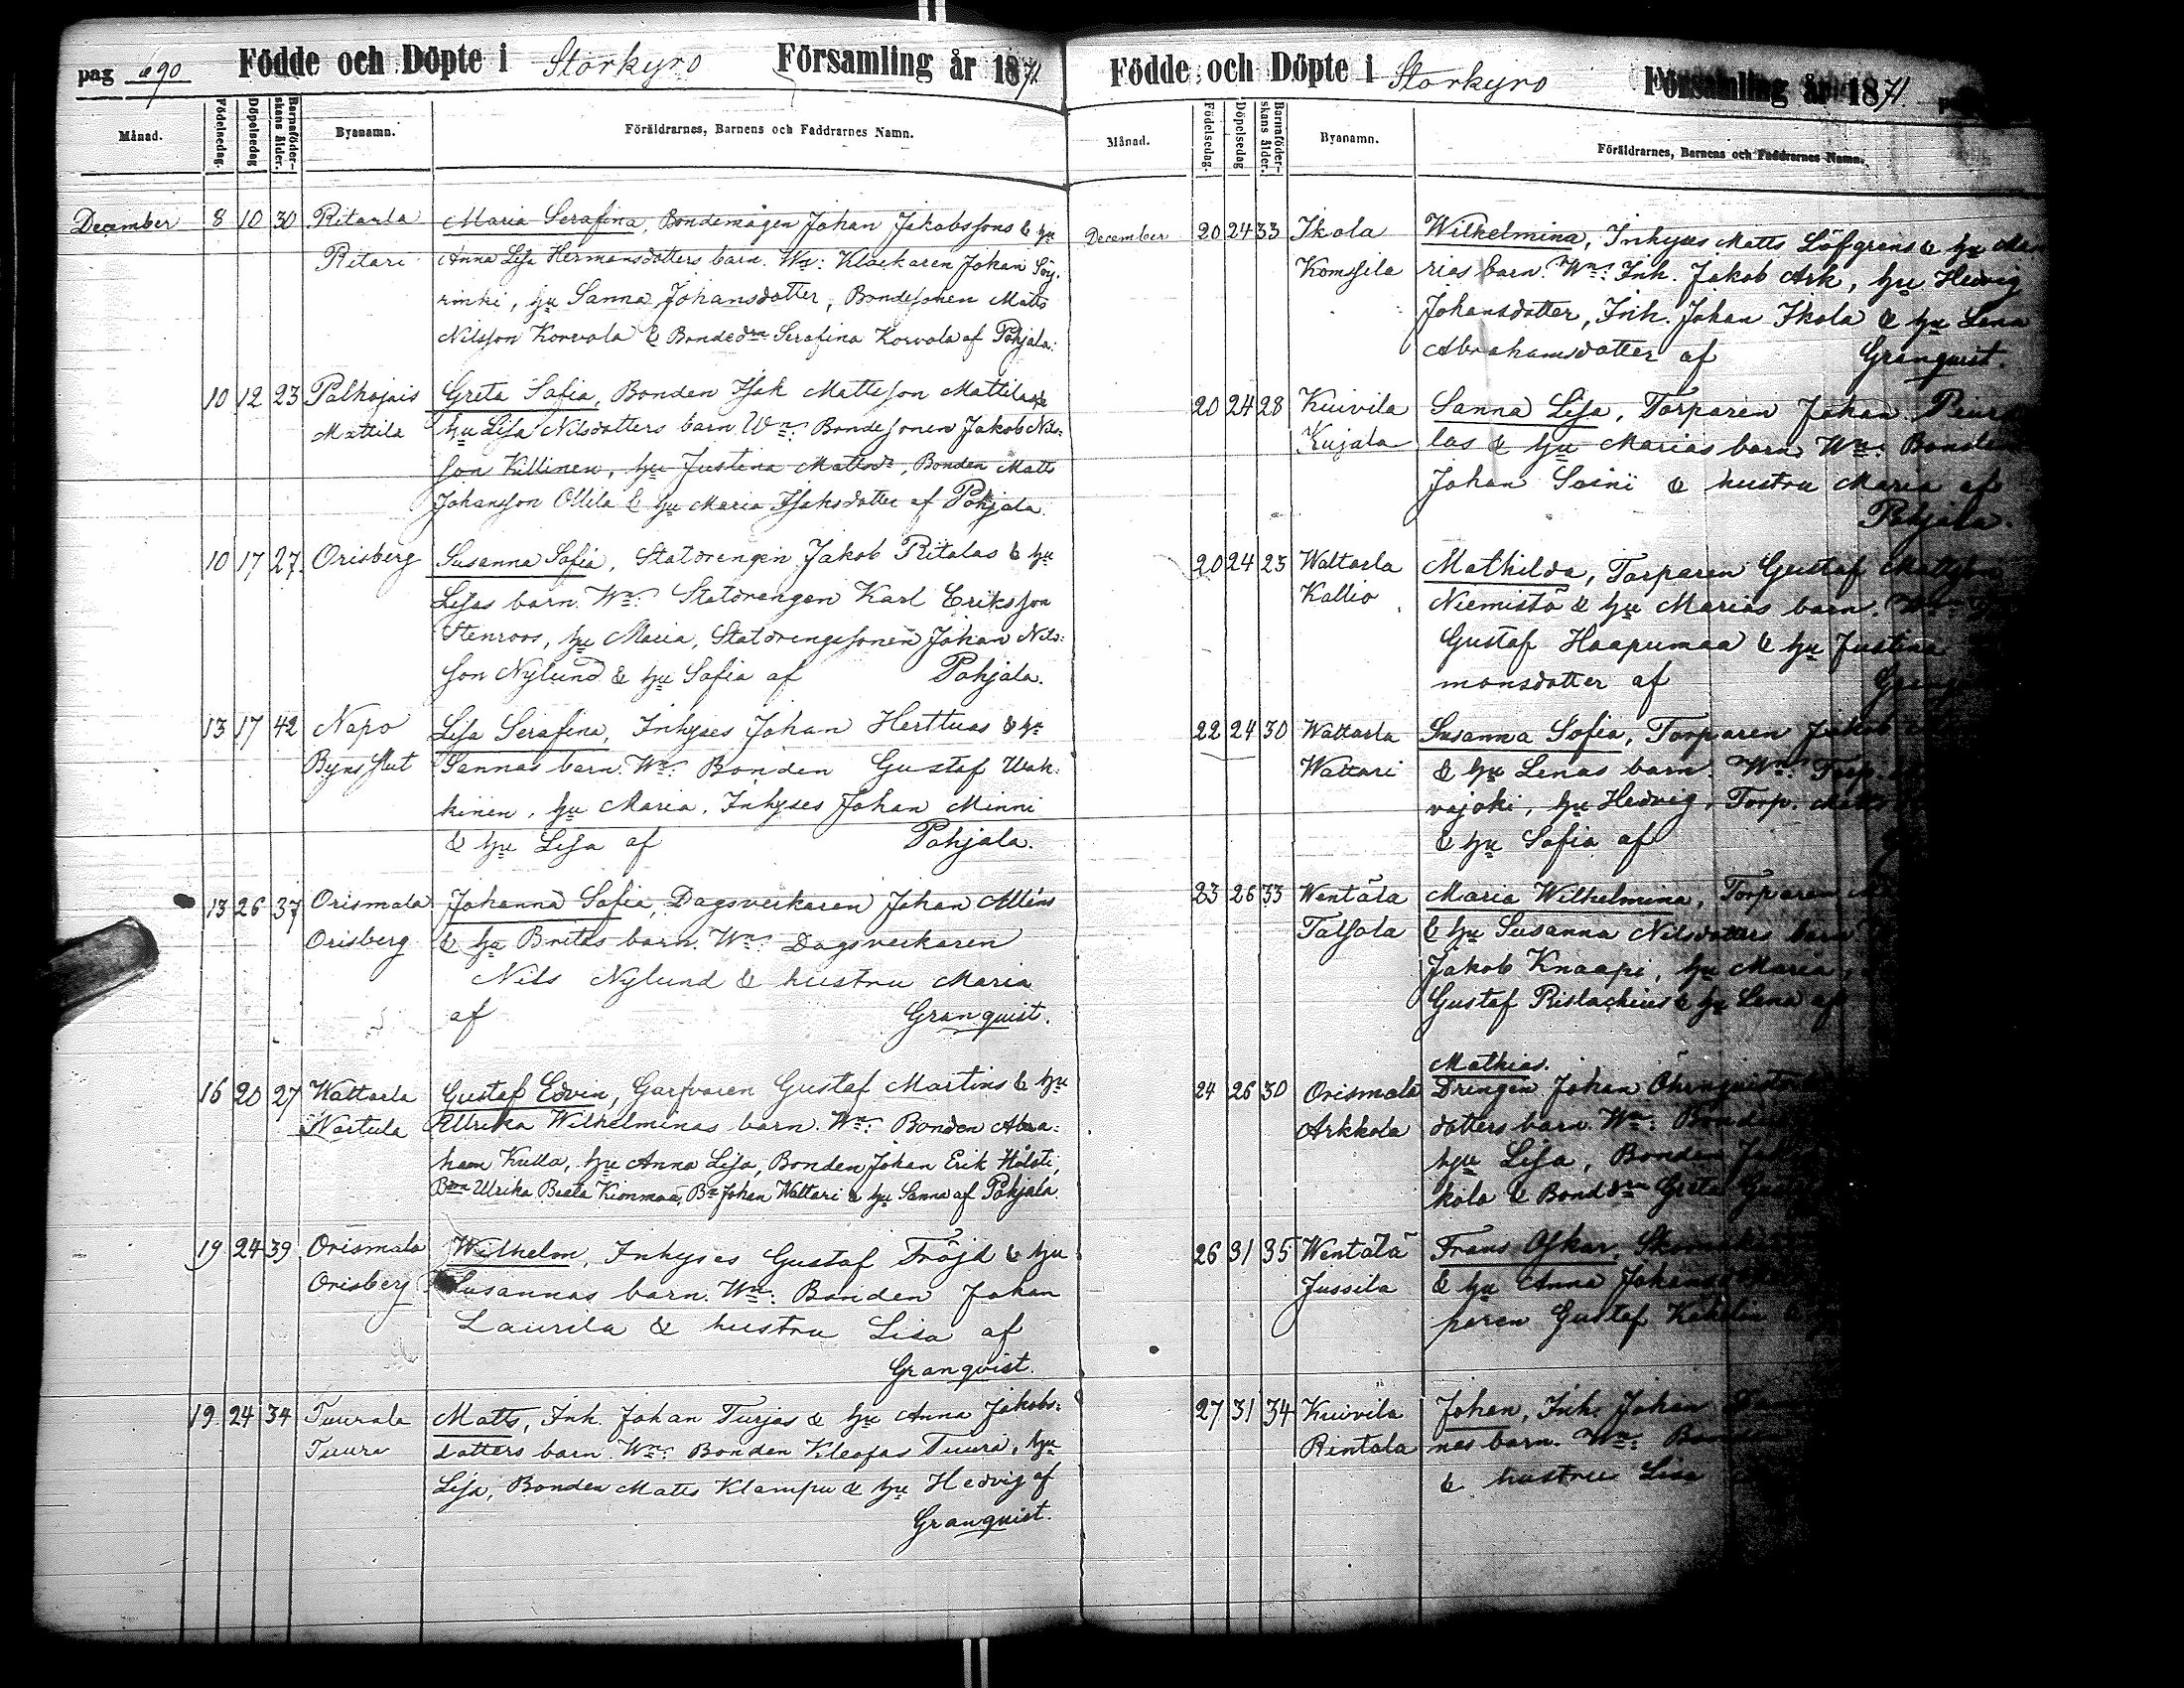 pag 690 Födde och Döpte i Storkyro Församling år 1871.
Månad. Födelsedag. Döpelsedag Barnaföderskans ålder. Byanamn. Föräldrarnes, Barnens och Faddrarnes Namn.
December 8 10 30 Ritaala Maria Serafina, Bondemågen Johan Jakobssons & hu
Ritari Anna Lisa Hermansdotters barn. Wn: Klockaren Johan Söy-
rinki, hu Sanna Johansdotter, Bondesonen Matts
Nilsson Korvola & Bondedrn Serafina Korvola af Pohjala.
10 12 23 Palhojais Greta Sofia, Bonden Isak Mattsson Mattilas &
Mattila hu Lisa Nilsdotters barn. Wn: Bondesonen Jakob Nils-
son Killinen, hu Justina Mattsdr, Bonden Matts
Johansson Ollila & hu Maria Isaksdotter af Pohjala.
10 17 27 Orisberg Susanna Sofia, Statdrengen Jakob Ritalas & hu
Lisas barn. Wn: Statdrengen Karl Eriksson
Stenroos, hu Maria, Statdrengssonen Johan Nils-
son Nylund & hu Sofia af Pohjala.
13 17 42 Napo Lisa Serafina, Inhyses Johan Herttuas & hu
Byns slut Sannas barn. Wn: Bonden Gustaf Wak-
kinen, hu Maria, Inhyses Johan Minni
& hu Lisa af Pohjala.
13 26 37 Orismala Johanna Sofia, Dagsverkaren Johan Alléns
Orisberg & hu Britas barn. Wn: Dagsverkaren
Nils Nylund & hustru Maria
af Granquist.
16 20 27 Wattarla Gustaf Edvin, Garfvaren Gustaf Martins & hu
Nartula Ulrika Wilhelminas barn. Wn: Bonden Abra-
ham Kulla, hu Anna Lisa, Bonden Johan Erik Holsti,
Bdn Ulrika Beata Kiommaa, Bn Johan Wattari & hu Sanna af Pohjala.
19 24 39 Orismala Wilhelm, Inhyses Gustaf Fröjd & hu
Orisberg Susannas barn. Wn: Bonden Johan
Laurila & hustru Lisa af
Granqvist.
19 24 34 Tuurala Matts, Inh. Johan Turjas & hu Anna Jakobs-
Tuura dotters barn. Wn: Bonden Kleofas Tuura, hu
Lisa, Bonden Matts Klampu & hu Hedvig af
Granquist.
Födde och Döpte i Storkyro Församling år 1871.
Månad. Födelsedag. Döpelsedag Barnaföderskans ålder. Byanamn. Föräldrarnes, Barnens och Faddrarnes Namn.
December 20 24 33 Ikola Wilhelmina, Inhyses Matts Löfgrens & hu Ma-
Komsila rias barn. Wn: Inh. Jakob Ark, hu Hedvig
Johansdotter, Inh. Johan Ikola & hu Lena
Abrahamsdotter af Granquist.
20 24 28 Kuivila Sanna Lisa, Torparen Johan
Kujala las & hu Marias barn Wn: Bonden
Johan Soini & hustru Maria af
Pohjala.
20 24 23 Wattarla Mathilda, Torparen Gustaf
Kallio Niemistö & hu Marias barn.
Gustaf Haapumaa & hu Justina
monsdotter af
22 24 30 Wattarla Susanna Sofia, Torparen Jakob
Wattari & hu Lenas barn. Wn: Torp.
vajoki, hu Hedvig, Torp. Matts
& hu Sofia af
23 26 33 Wentälä Maria Wilhelmina, Torparen
Talsola & hu Susanna Nilsdotters barn
Jakob Knaapi, hu Maria,
Gustaf Rislachius & hu Lena af
Mathias.
24 26 30 Orismala Drengen Johan Öhrnquists
Arkkola dotters barn. Wn: Bonden
hu Lisa, Bonden
kola & Bonddrn Greta
26 31 35 Wentälä Frans Oskar,
Jussila & hu Anna
paren Gustaf
27 31 34 Kuivila Johan, Inh. Johan
Rintala nas barn. Wn:
& hustru Lisa